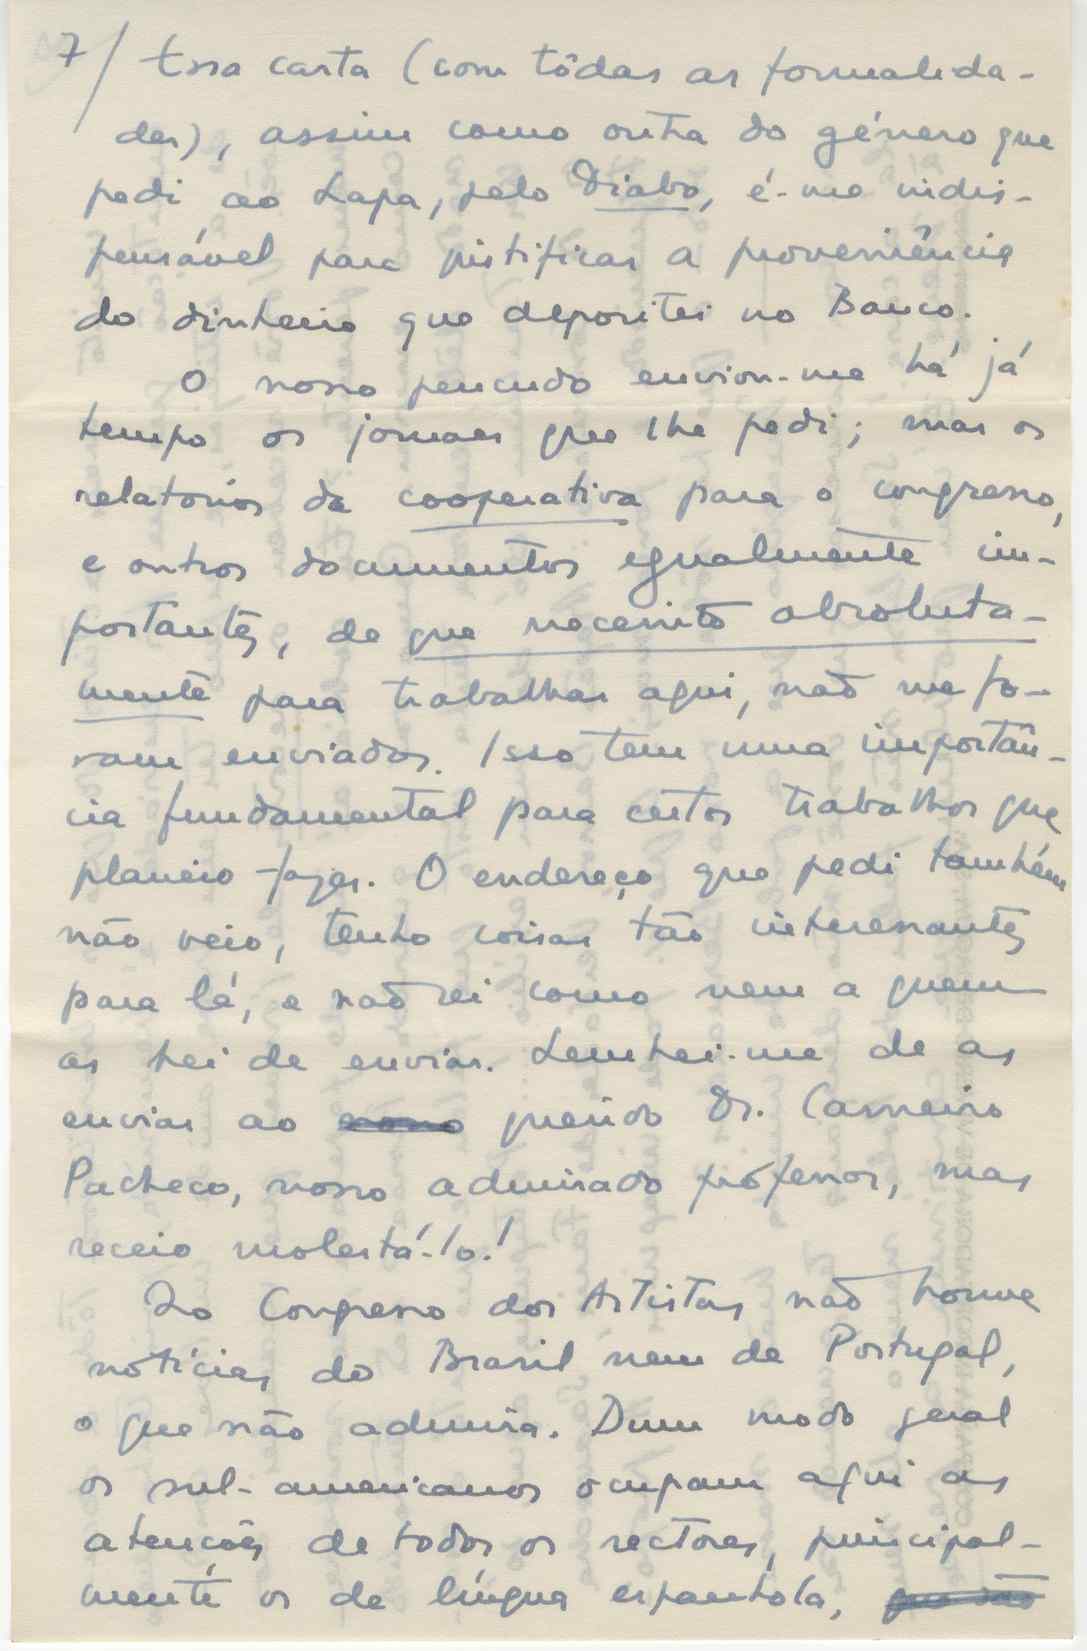 7/ Essa carta (com tôdas as formalida-
des), assim como outra do género que
pedi ao Lapa, pelo Diabo, é-me indis-
pensável para justificar a proveniência
do dinheiro que depositei no Banco.
O nosso pencudo enviou-me há já
tempo os jornaes que lhe pedi; mas os
relatorios da cooperativa para o congresso,
e outros documentos egualmente im-
portantes, de que necessito absoluta-
mente para trabalhar aqui, não me fo-
ram enviados. Isso tem uma importân-
cia fundamental para certos trabalhos que
planeio fazer. O endereço que pedi também
não veio, tenho coisas tão interessantes
para lá, e não sei como nem a quem
as hei de enviar. Lembrei-me de as
enviar ao querido Dr. Carneiro
Pacheco, nosso admirado professor, mas
receio molestá-lo!
Do Congresso dos Artistas não houve
notícias do Brasil nem de Portugal,
o que não admira. Dum modo geral
os sul-americanos ocupam aqui as
atenções de todos os sectores, principal-
mente os de língua espanhola, que são